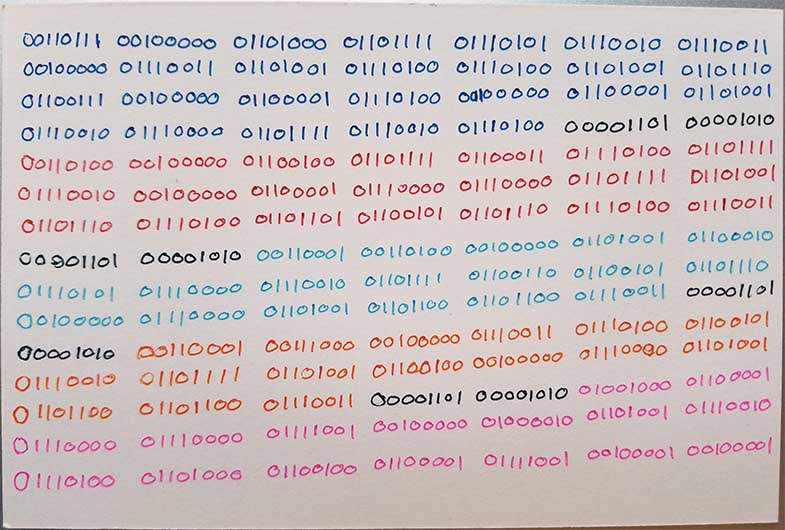 00110111 00100000 01101000 01101111 01110101 01110010 01110011
00100000 01110011 01101001 01110100 01110100 01101001 01101110
01100111 00100000 01100001 01110100 00100000 01100001 01101001
01110010 01110000 01101111 01110010 01110100 00001101 00001010
00110100 00100000 01100100 01101111 01100011 01110100 01101111
01110010 00100000 01100001 01110000 01110000 01101111 01101001
01101110 01110100 01101101 01100101 01101110 01110100 01110011
00001101 00001010 00110001 00110100 00100000 01101001 01100010
01110101 01110000 01110010 01101111 01100110 01100101 01101110
00100000 01110000 01101001 01101100 01101100 01110011 00001101
00001010 00110001 00111000 00100000 01110011 01110100 01100101
01110010 01101111 01101001 01100100 00100000 01110000 01101001
01101100 01101100 01110011 00001101 00001010 01001000 01100001
01110000 01110000 01111001 00100000 01000010 01101001 01110010
01110100 01101000 01100100 01100001 01111001 00100001 00100001